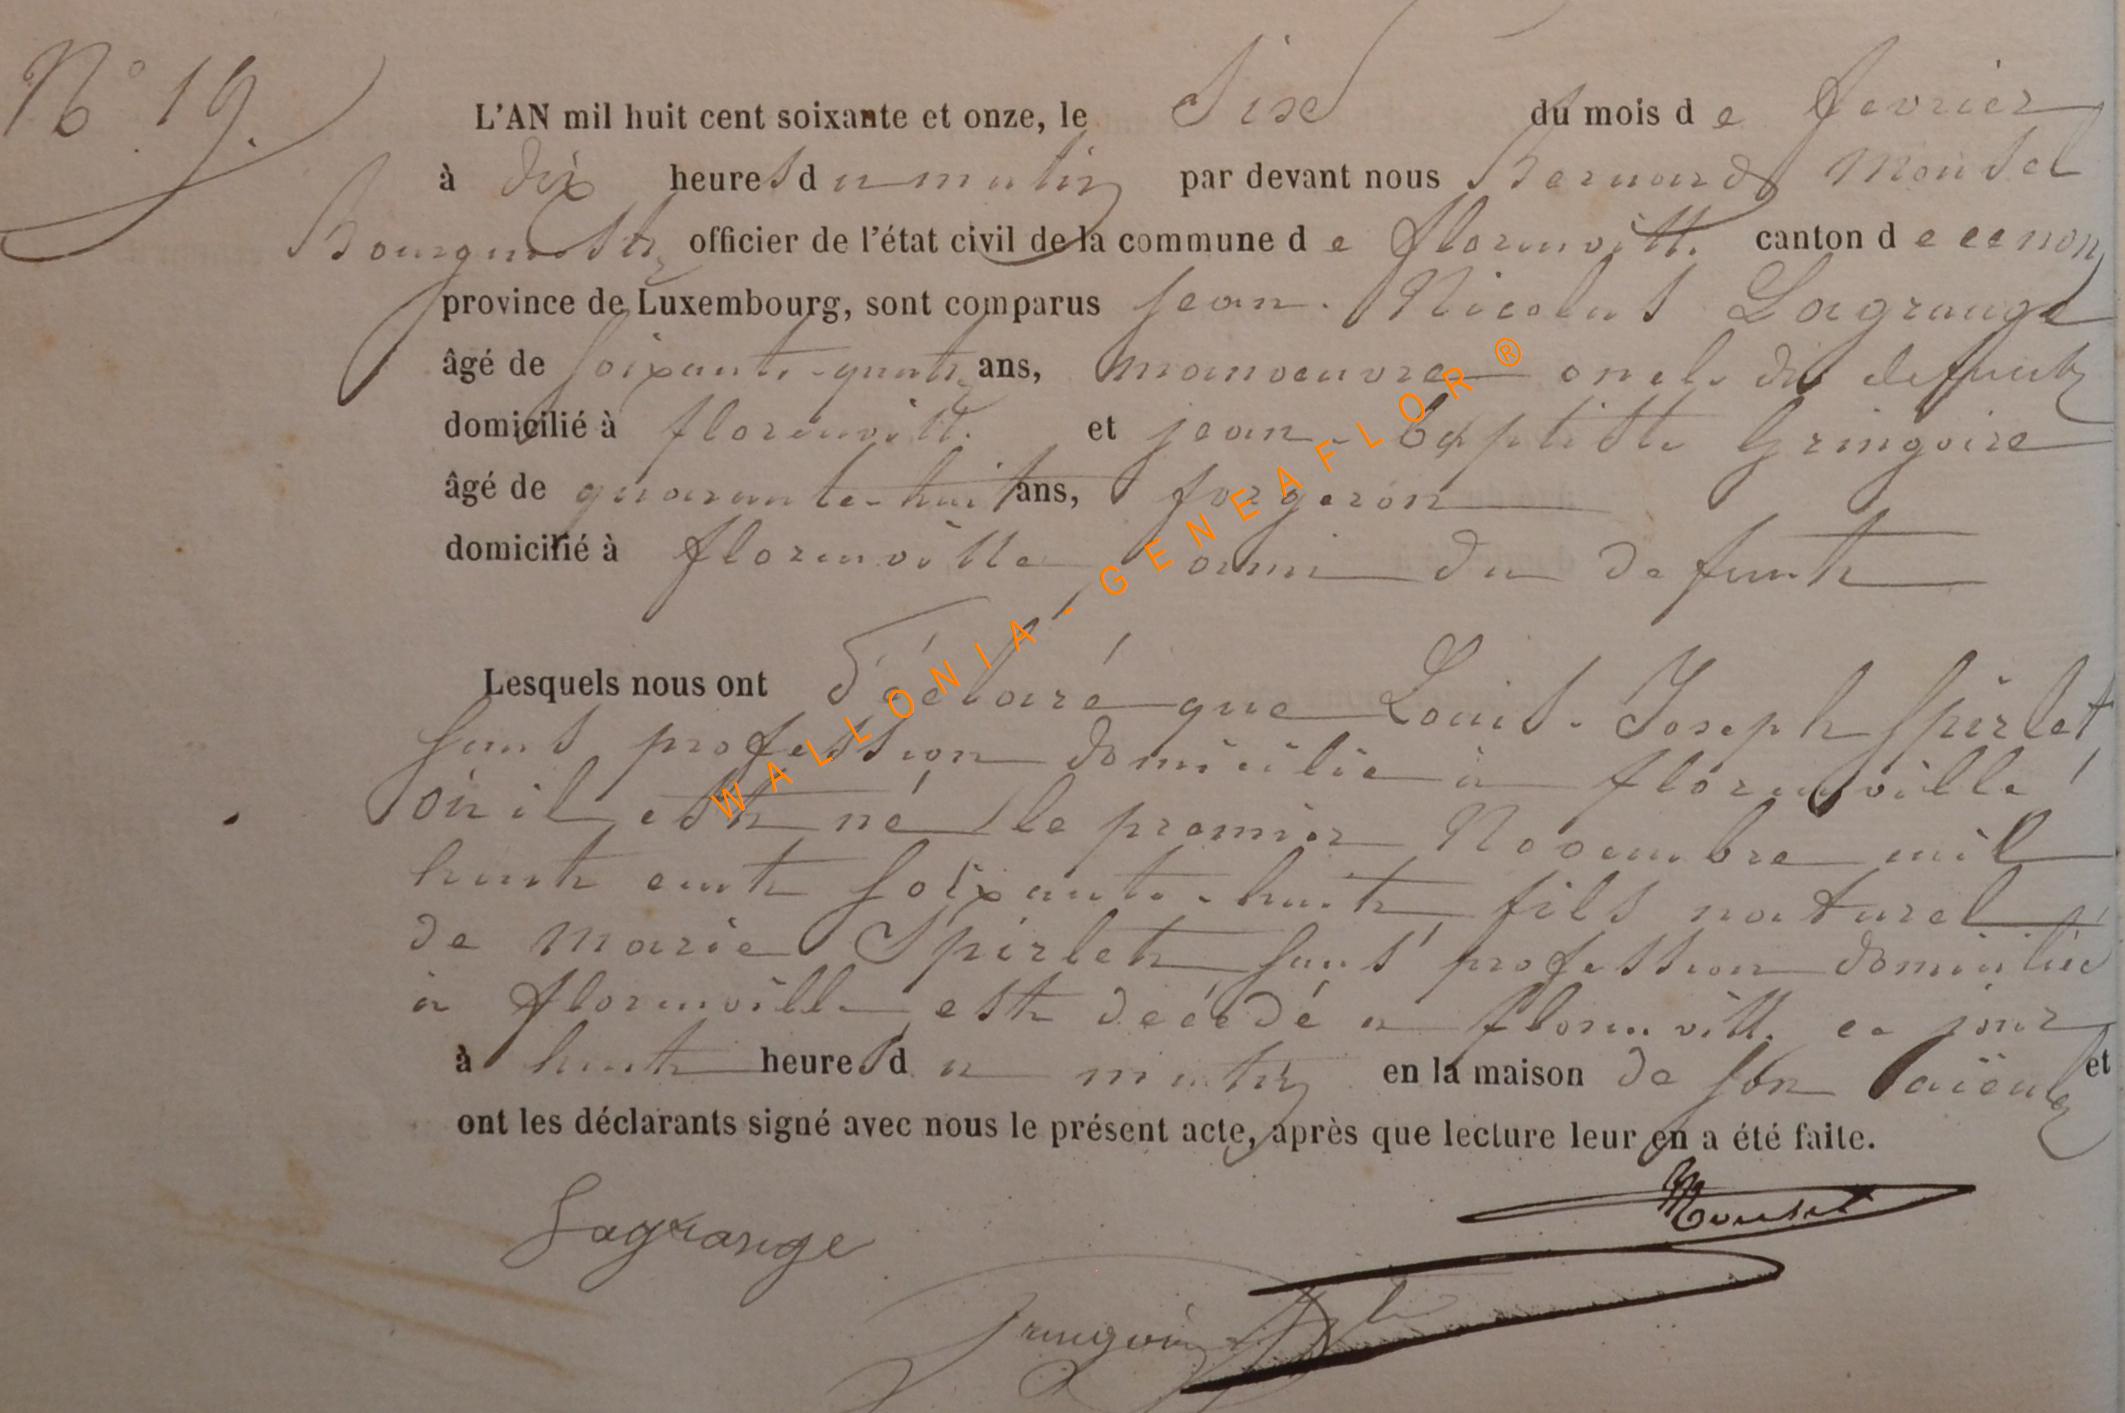 N° 19.
L'AN mil huit cent soixante et onze, le Six du mois de fevrier
à dix heures du matin par devant nous Bernard Mousel
Bourgmestre officier de l'état civil de la commune de florenville canton de ce nom
province de Luxembourg, sont comparus jean Nicolas Lagrange
âgé de soixante-quatre ans, manoeuvre oncle du defunt
domicilié à florenville et jean-baptiste Gringoire
âgé de quarante-huit ans, forgeron
domicilié à florenville ami du defunt
Lesquels nous ont déclaré que Louis-Joseph Spirlet
sans profession domicilié à florenville
où il est né le premier Novembre mil
huit cent soixante-huit, fils naturel
de marie Spirlet sans profession domiciliée
à florenville est décédé a florenville ce jour
à huit heures du matin en la maison de son aïeule et
ont les déclarants signé avec nous le présent acte, après que lecture leur en a été faite.
Lagrange Mousel
Gringoire
WALLONIA-GENEAFLOR®